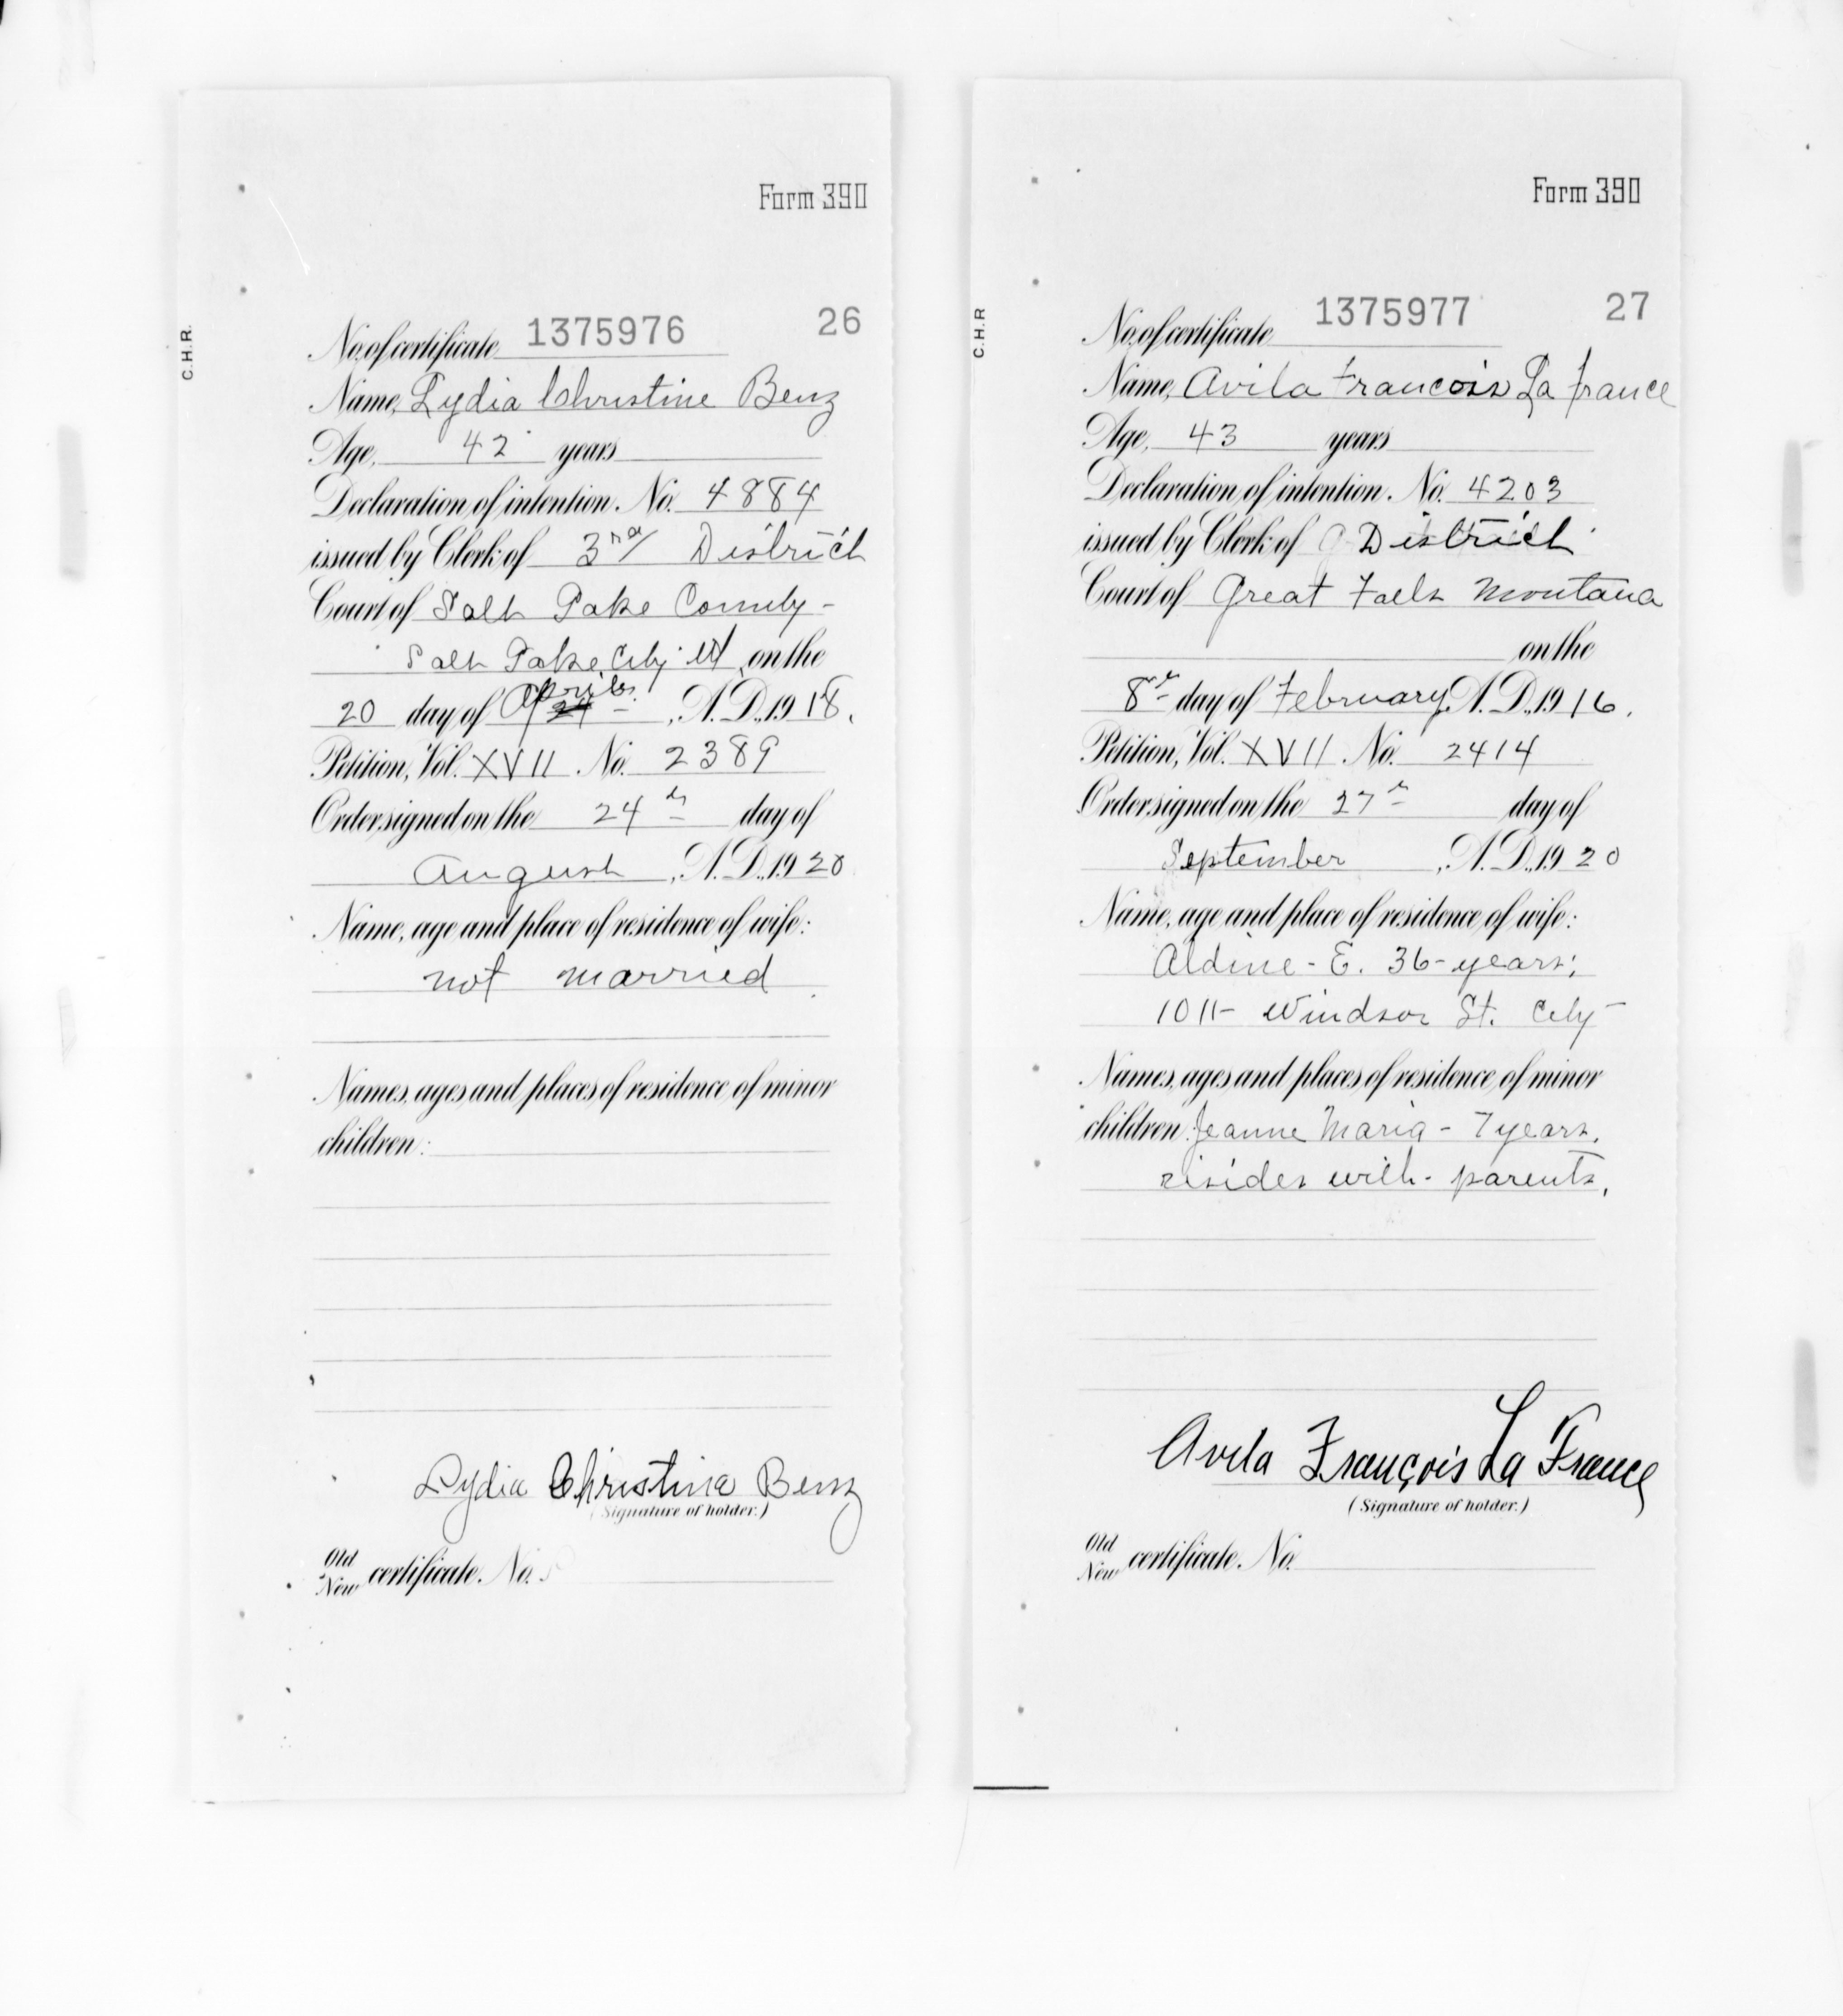 Form 390
C.H.R.
No. of certificate 1375976 26
Name, Lydia Christine Benz
Age, 42 years
Declaration of intention, No. 4884
issued by Clerk of 3rd District
Court of Salt Lake County -
Salt Lake City Ut on the
20 day of April 24, A.D., 1918.
Petition, Vol. XVII No. 2389
Order signed on the 24th day of
August, A.D., 1920
Name, age and place of residence of wife:
not married
Names, ages and places of residence of minor
children:
Lydia Christina Benz
(Signature of holder.)
Old
New certificate. No.
Form 390
C.H.R
No. of certificate 1375977 27
Name, Avila Francois La France
Age, 43 years
Declaration of intention. No. 4203
issued by Clerk of District
Court of Great Falls Montana
on the
8th day of February, A.D., 1916.
Petition, Vol. XVII. No. 2414
Order signed on the 27th day of
September, A.D., 1920
Name, age and place of residence of wife:
Aldine - E. 36 - years;
1011 - Windsor St. City -
Names, ages and places of residence of minor
children: Jeanne Maria - 7 years.
resides with - parents.
Avila François La France
(Signature of holder.)
Old
New certificate. No.